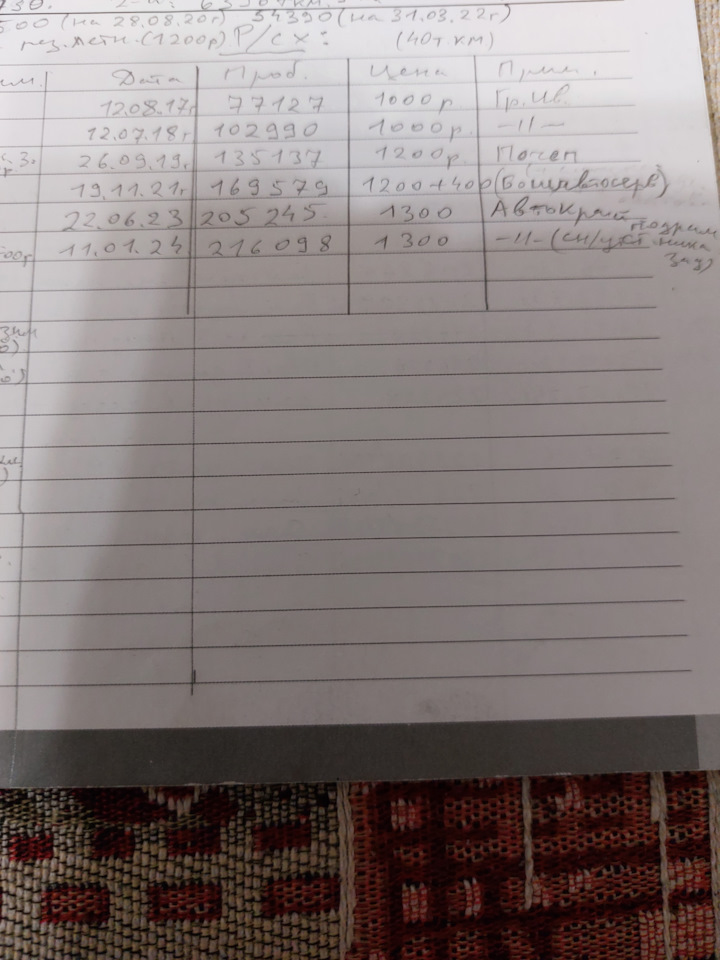 500 (на 28.08.20г) 54390 (на 31.03.22г)
рез. летн. (1200р) Р/сх: (40т.км)
Дата Проб. Цена Прим.
12.08.17г 77127 1000р. Гр.Ив.
12.07.18г 102990 1000р. -//-
26.09.19г 135137 1200р. Почеп
19.11.21г 169579 1200+400 (Бошавтосерв)
22.06.23 205245 1300 Автокрай
11.01.24 216098 1300 -//- (сн/уст подрамника зад)